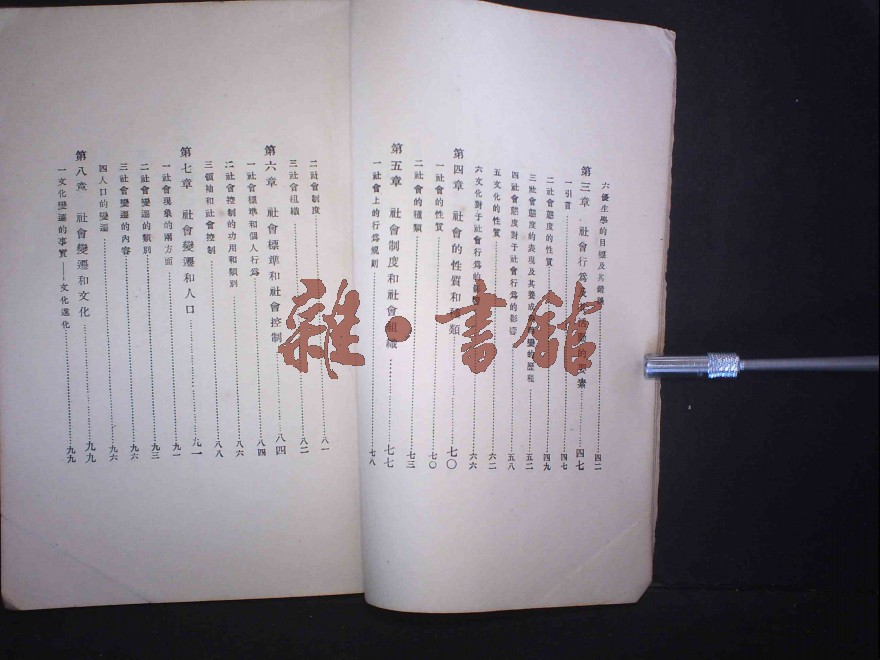 六優生學的目標及其錯誤……四二
第三章 社會行為……的要素……四七
一引言……四七
二社會態度的性質……四九
三社會態度的表現及其養成……變的歷程……五二
四社會態度對于社會行為的影響……五八
五文化的性質……六二
六文化對于社會行為的影響……六六
第四章 社會的性質和種類……七〇
一社會的性質……七〇
二社會的種類……七三
第五章 社會制度和社會組織……七七
一社會上的行為規則……七八
二社會制度……八一
三社會組織……八二
第六章 社會標準和社會控制……八四
一社會標準和個人行為……八四
二社會控制的功用和類別……八六
三領袖和社會控制……八八
第七章 社會變遷和人口……九一
一社會現象的兩方面……九一
二社會變遷的類別……九三
三社會變遷的內容……九六
四人口的變遷……九六
第八章 社會變遷和文化……九九
一文化變遷的事實——文化進化……九九
雜·書館